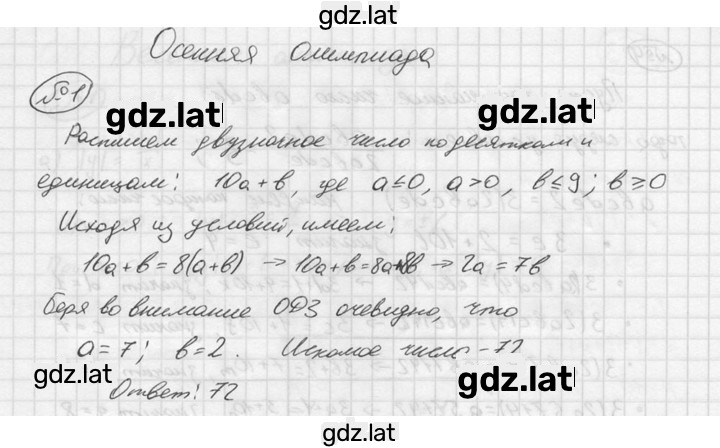 gdz.lat
Осенняя олимпиада
№1
gdz.lat
gdz.lat
Распишем двузначное число по десяткам и
единицам: 10a+b, где a≤0, a>0, b≤9; b≥0
Исходя из условий, имеем:
10a+b=8(a+b) → 10a+b=8a+8b → 2a=7b
Беря во внимание ОДЗ очевидно, что
a=7; b=2. Искомое число - 72
gdz.lat
gdz.lat
Ответ: 72
gdz.lat